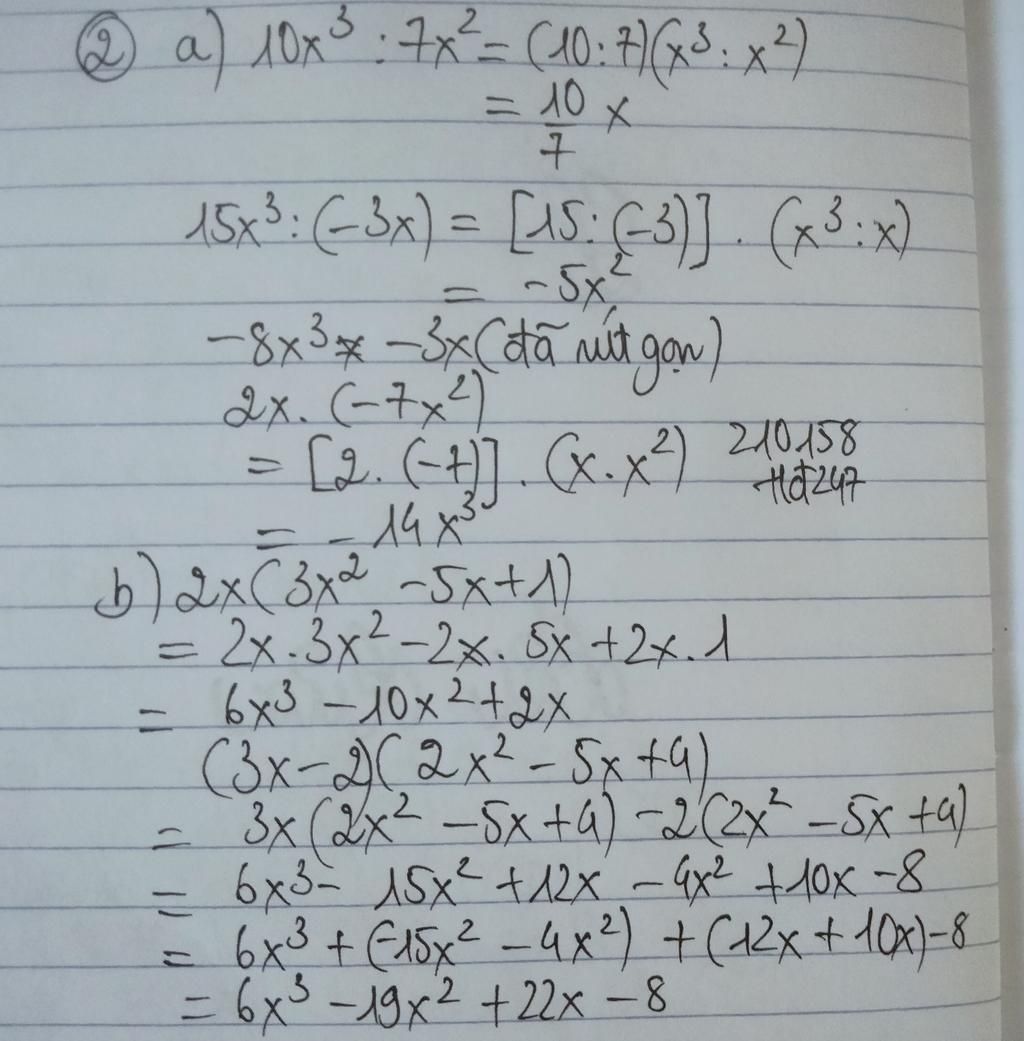 ② a) 10x³ : 7x² = (10:7)(x³ : x²)
= 10/7 x
15x³ : (-3x) = [15 : (-3)] . (x³ : x)
= -5x²
-8x³ - 3x (đã rút gọn)
2x . (-7x²)
= [2 . (-7)] . (x . x²) 210158
= -14x³
b) 2x(3x² - 5x + 1)
= 2x . 3x² - 2x . 5x + 2x . 1
= 6x³ - 10x² + 2x
(3x - 2)(2x² - 5x + 4)
= 3x(2x² - 5x + 4) - 2(2x² - 5x + 4)
= 6x³ - 15x² + 12x - 4x² + 10x - 8
= 6x³ + (-15x² - 4x²) + (12x + 10x) - 8
= 6x³ - 19x² + 22x - 8